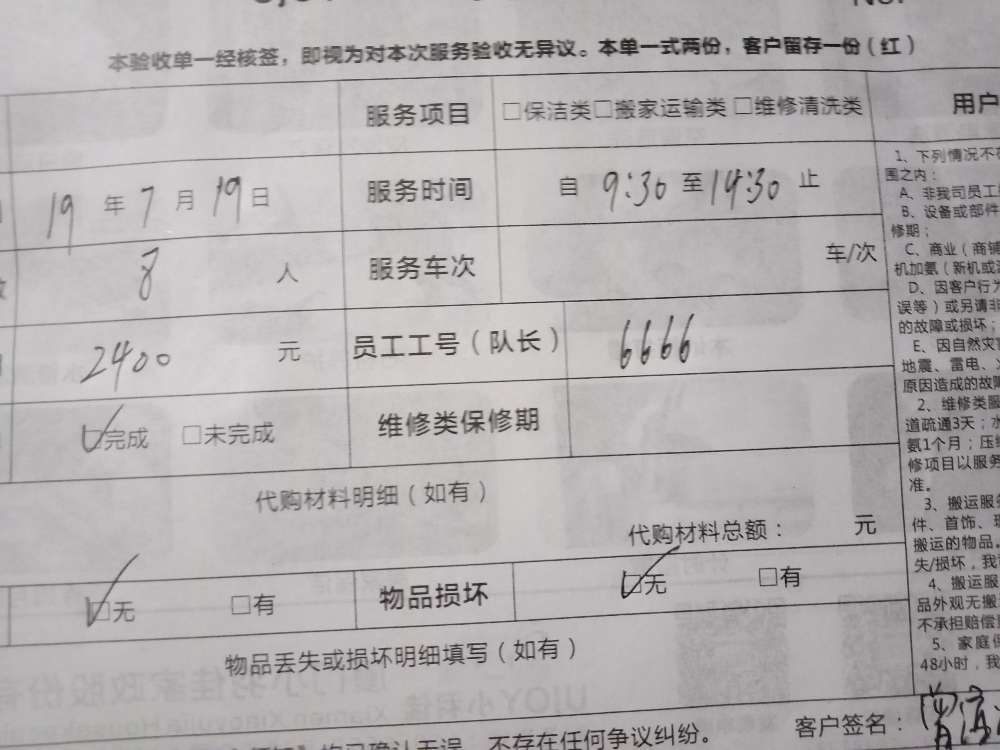 No.
本验收单一经核签，即视为对本次服务验收无异议。本单一式两份，客户留存一份（红）
服务项目 □保洁类□搬家运输类 □维修清洗类
19 年 7 月 19 日 服务时间 自 9:30 至 14:30 止
8 人 服务车次 车/次
2400 元 员工工号（队长） 6666
☑完成 □未完成 维修类保修期
代购材料明细（如有）
代购材料总额： 元
☑无 □有 物品损坏 ☑无 □有
物品丢失或损坏明细填写（如有）
不存在任何争议纠纷。
客户签名：
用户
1、下列情况不在
围之内：
A、非我司员工
B、设备或部件
修期；
C、商业（商铺
机加氨（新机或
D、因客户行为
误等）或另请非
的故障或损坏；
E、因自然灾害
地震、雷电、
原因造成的故障
2、维修类服
道疏通3天；水
氨1个月；压缩
修项目以服务
准。
3、搬运服务
件、首饰、
搬运的物品。
失/损坏，我
4、搬运服
品外观无搬
不承担赔偿
5、家庭保
48小时，我